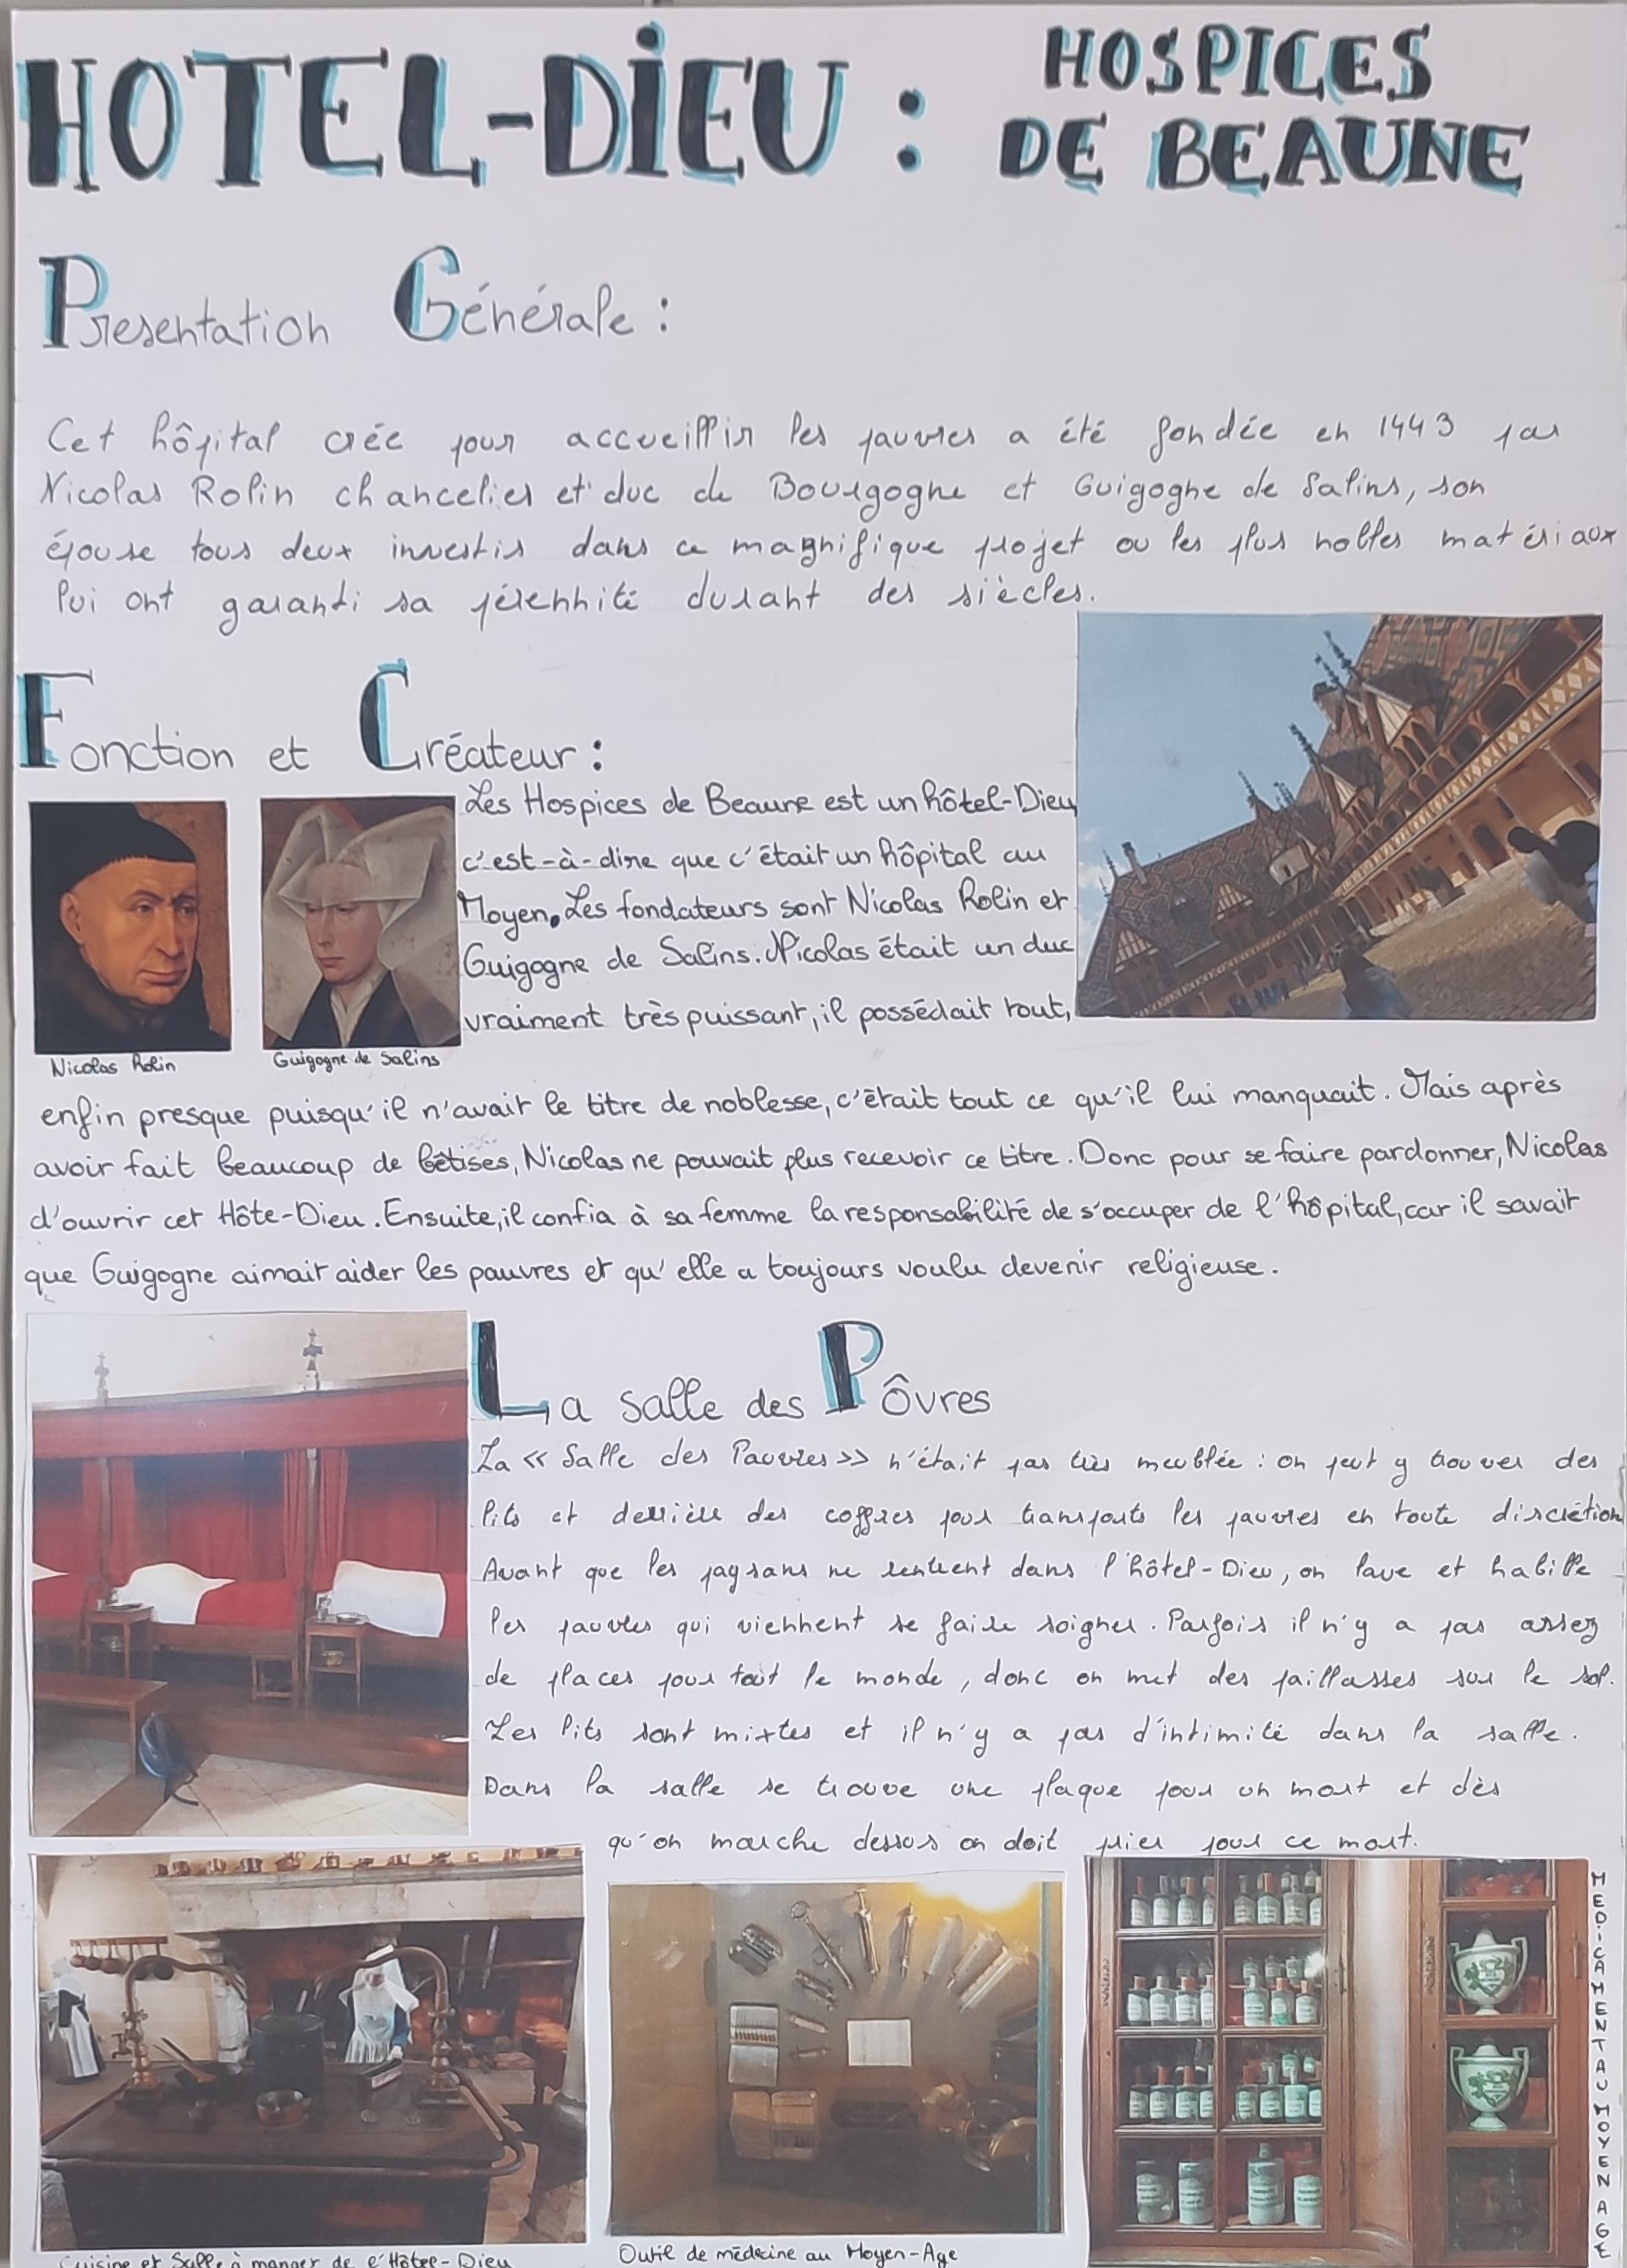 HOTEL-DIEU : HOSPICES
DE BEAUNE
Presentation Générale :
Cet hôpital crée pour accueillir les pauvres a été fondée en 1443 par
Nicolas Rolin chancelier et duc de Bourgogne et Guigogne de Salins, son
épouse tous deux investis dans ce magnifique projet ou les plus nobles matériaux
lui ont garanti sa pérennité durant des siècles.
Fonction et Créateur :
Les Hospices de Beaune est un hôtel-Dieu
c'est-à-dire que c'était un hôpital au
Moyen. Les fondateurs sont Nicolas Rolin et
Guigogne de Salins. Nicolas était un duc
vraiment très puissant, il possédait tout,
Nicolas Rolin
Guigogne de Salins
enfin presque puisqu'il n'avait le titre de noblesse, c'était tout ce qu'il lui manquait. Mais après
avoir fait beaucoup de bêtises, Nicolas ne pouvait plus recevoir ce titre. Donc pour se faire pardonner, Nicolas
d'ouvrir cet Hôte-Dieu. Ensuite, il confia à sa femme la responsabilité de s'occuper de l'hôpital, car il savait
que Guigogne aimait aider les pauvres et qu'elle a toujours voulu devenir religieuse.
La salle des Pôvres
La « Salle des Pauvres » n'était pas très meublée : on peut y trouver des
lits et derrière des coffres pour transports les pauvres en toute discrétion
Avant que les paysans ne rentrent dans l'hôtel-Dieu, on lave et habille
les pauvres qui viennent se faire soigner. Parfois il n'y a pas assez
de places pour tout le monde, donc on met des paillasses sur le sol.
Les lits sont mixtes et il n'y a pas d'intimité dans la salle.
Dans la salle se trouve une plaque pour un mort et dès
qu'on marche dessus on doit prier pour ce mort.
Cuisine et Salle à manger de l'Hôtel-Dieu
Outil de médecine au Moyen-Age
MEDICAMENT AU MOYEN AGE